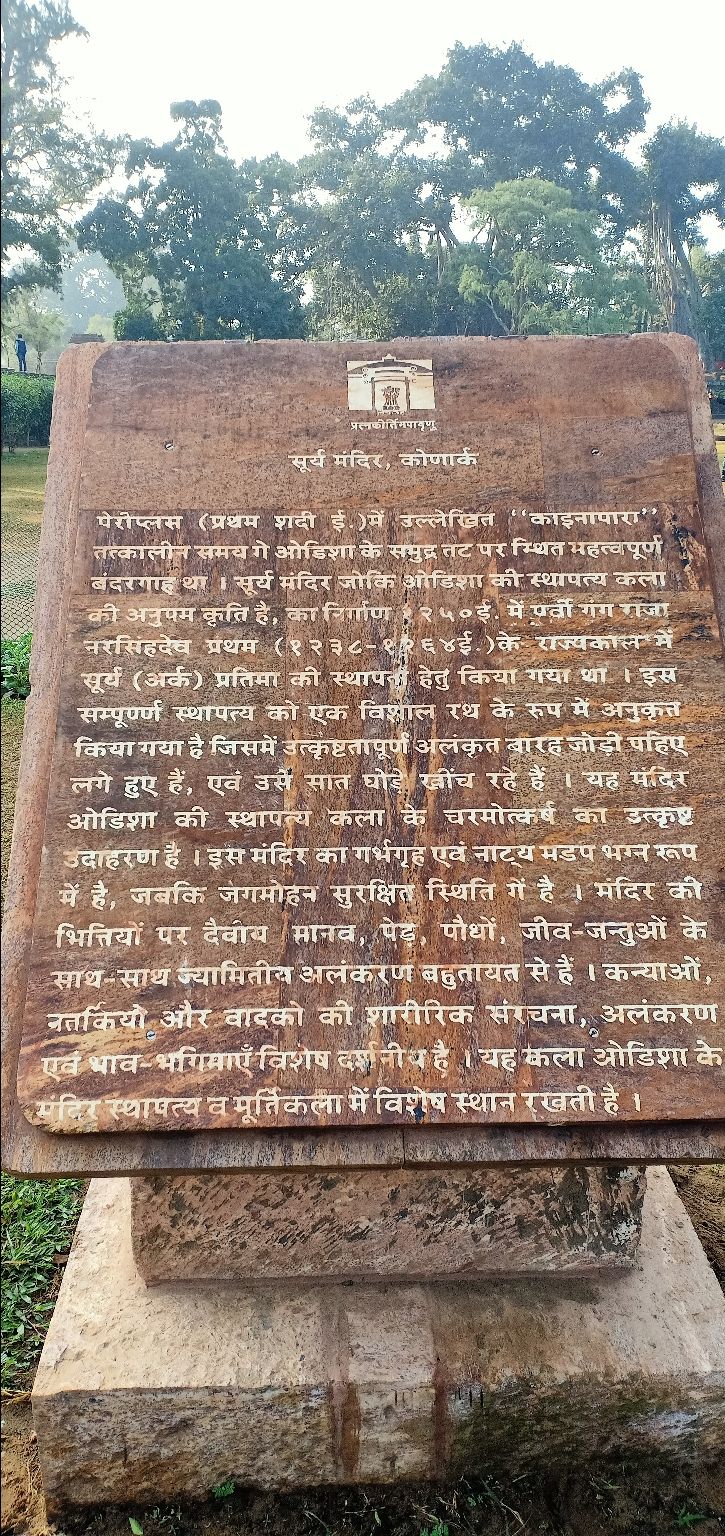 प्रत्नकीर्तिमपावृणु
सूर्य मंदिर, कोणार्क
पेरीप्लस (प्रथम शदी ई.)में उल्लेखित ‘‘काइनापारा’’
तत्कालीन समय गे ओडिशा के समुद्र तट पर स्थित महत्वपूर्ण
बंदरगाह था । सूर्य मंदिर जोकि ओडिशा की स्थापत्य कला
की अनुपम कृति है, का निर्गाण १२५०ई. में पूर्वी गंग राजा
नरसिंहदेव प्रथम (१२३८-१२६४ई.)के राज्यकाल में
सूर्य (अर्क) प्रतिमा की स्थापना हेतु किया गया था । इस
सम्पूर्ण्ण स्थापत्य को एक विशाल रथ के रुप में अनुकृत
किया गया है जिसमें उत्कृष्टतापूर्ण अलंकृत बारह जोड़ी पहिए
लगे हुए हैं, एवं उसे सात घोड़े खींच रहे हैं । यह मंदिर
ओडिशा की स्थापत्य कला के चरमोत्कर्ष का उत्कृष्ट
उदाहरण है । इस मंदिर का गर्भगृह एवं नाट्य मडप भग्न रूप
में है, जबकि जगमोहन सुरक्षित स्थिति गें है । मंदिर की
भित्तियों पर दैवीय मानव, पेड़, पौधों, जीव-जन्तुओं के
साथ-साथ ज्यामितीय अलंकरण बहुतायत से हैं । कन्याओं,
नर्तकियो और वादको की शारीरिक संरचना, अलंकरण
एवं भाव-भगिमाएँ विशेष दर्शनीय है । यह कला ओडिशा के
मंदिर स्थापत्य व मूर्तिकला में विशेष स्थान रखती है ।